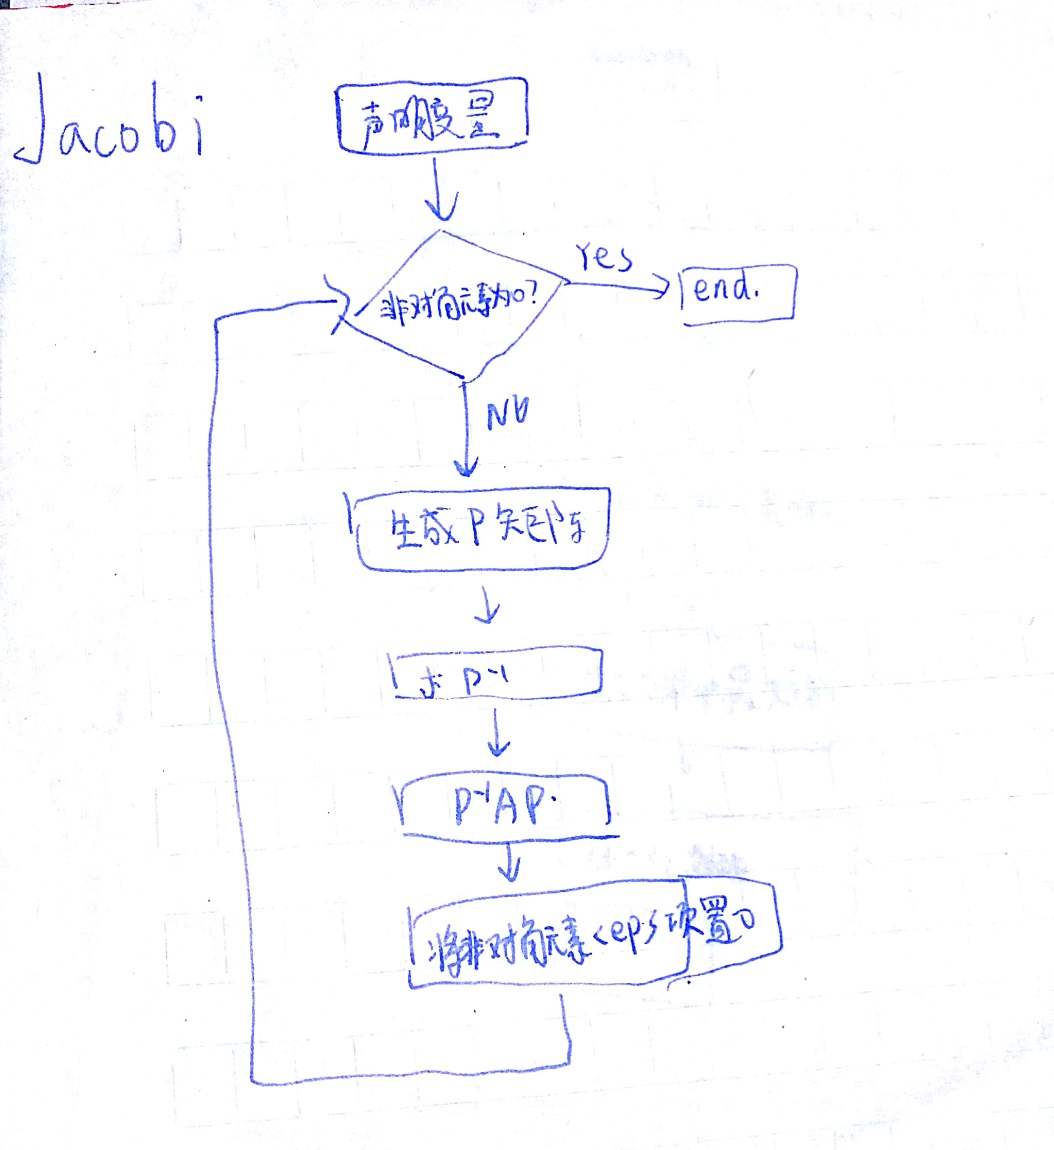 Jacobi
声明变量
非对角元素为0?
Yes
end.
No
生成P矩阵
求 P⁻¹
P⁻¹AP.
将非对角元素<eps项置0